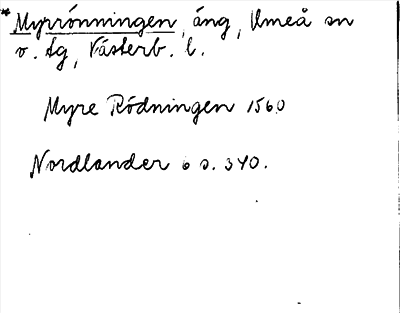 * Myrrönningen, äng, Umeå sn
o. tg, Västerb. l.
Myre Rödningen 1560
Nordlander 6 s. 340.